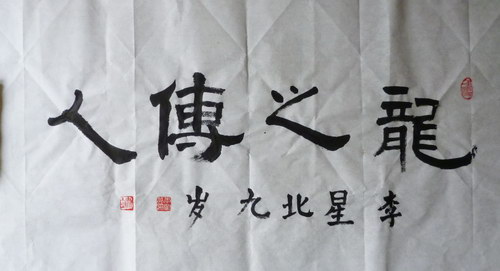 龍之傳人
李星北九岁